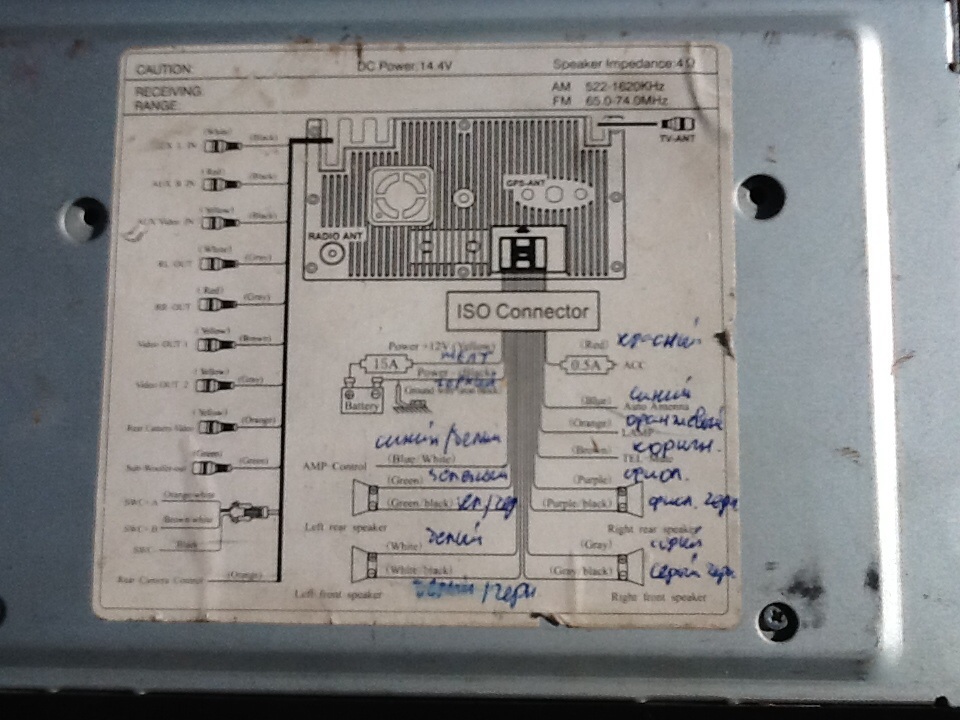 CAUTION: DC Power:14.4V Speaker Impedance:4Ω
RECEIVING RANGE:
AM 522-1620KHz
FM 65.0-74.0MHz
TV-ANT
GPS-ANT
RADIO ANT
ISO Connector
(White) (Black)
L IN
(Red) (Black)
AUX R IN
(Yellow) (Black)
AUX Video IN
(White) (Gray)
RL OUT
(Red) (Gray)
RR OUT
(Yellow) (Brown)
Video OUT 1
(Yellow) (Gray)
Video OUT 2
(Yellow) (Orange)
Rear Camera Video
(Green) (Green)
Sub-Woofer-out
SWC+A Orange/white
SWC+B Brown/white
SWC- Black
Rear Camera Control (Orange)
Power +12V (Yellow)
желт
15A
Power - (Black)
черный
Battery
синий/белый
(Blue/White)
AMP Control
(Green) зеленый
(Green/black)
Left rear speaker
(White) белый
(White/black)
белый/черн
Left front speaker
(Red) красный
0.5A ACC
(Blue) синий
Auto Antenna
(Orange) оранжевый
LAMP
(Brown) коричн.
TEL
(Purple) фиол.
(Purple/black) фиол. черн
Right rear speaker
(Gray) серый
(Gray/black) серый черн
Right front speaker